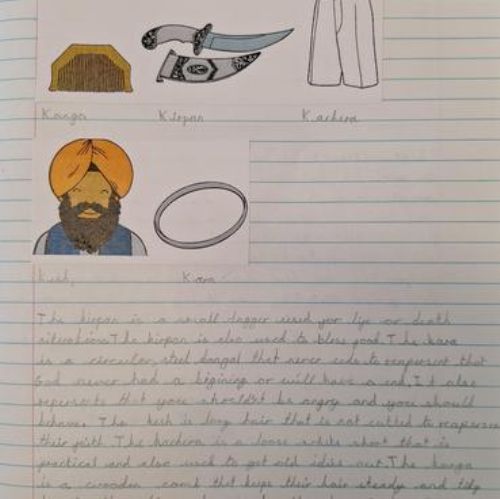 Kanga Kirpan Kachera
Kesh, Kara
The kirpan is a small dagger used for life or death
situations. The kirpan is also used to bless food. The kara
is a circular, steel bangal that never ends to reapersent that
God never had a bigining or will have a end. It also
repersents that you shouldnt be angry and you should
behave. The kesh is long hair that is not cutted to reapersen
their faith. The kachera is a loose white short that is
practical and also used to get old ideas out. The kanga
is a wooden comb that keeps their hair steady and tidy